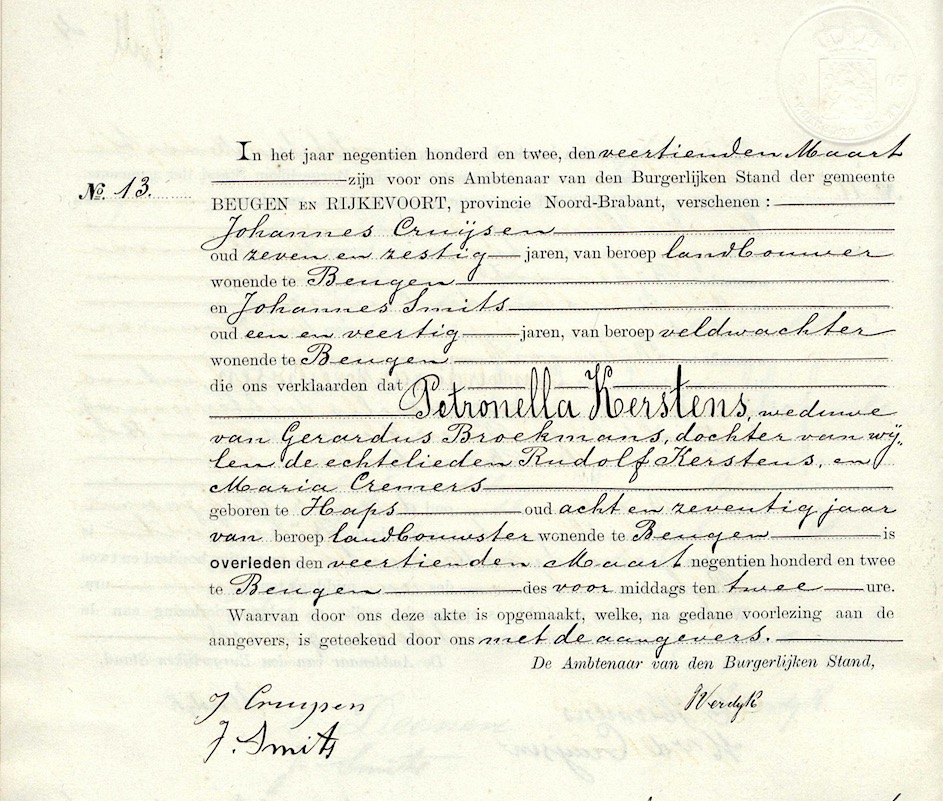 In het jaar negentien honderd en twee, den veertienden Maart
zijn voor ons Ambtenaar van den Burgerlijken Stand der gemeente
No. 13.
BEUGEN EN RIJKEVOORT, provincie Noord-Brabant, verschenen :
Johannes Cruijsen
oud zeven en zestig jaren, van beroep landbouwer
wonende te Beugen
en Johannes Smits
oud een en veertig jaren, van beroep veldwachter
wonende te Beugen
die ons verklaarden dat
Petronella Kerstens, weduwe
van Gerardus Broekmans, dochter van wij-
len de echtelieden Rudolf Kerstens, en
Maria Cremers
geboren te Haps oud acht en zeventig jaar
van beroep landbouwster wonende te Beugen is
overleden den veertienden Maart negentien honderd en twee
te Beugen des voor middags ten twee ure.
Waarvan door ons deze akte is opgemaakt, welke, na gedane voorlezing aan de
aangevers, is geteekend door ons met de aangevers.
De Ambtenaar van den Burgerlijken Stand,
J Cruysen
J. Smits